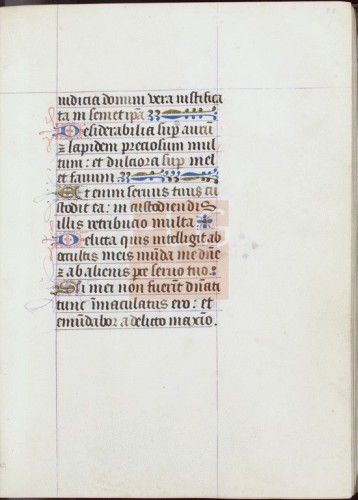 iudicia domini vera iustifica
ta in semetip̃a
Desiderabilia sup̱ aurũ
⁊ lapidem preciosum mul
tum: et dulciora sup̱ mel
et fauum
Et enim seruus tuus cu
stodit ea: in custodiendis
illis retribucio multa
Delicta quis intelligit ab
ocultis meis mũda me dñe
⁊ ab alienis p̱ce seruo tuo:
Si mei non fuerĩt dñati
tunc ĩmaculatus ero: et
emũdabor a delicto maxĩo.